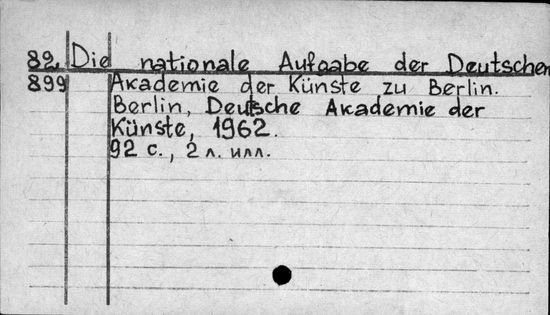 82. Die nationale Aufgabe der Deutschen
899 Akademie der Künste zu Berlin.
Berlin, Deutsche Akademie der
Künste, 1962.
92 с., 2 л. илл.